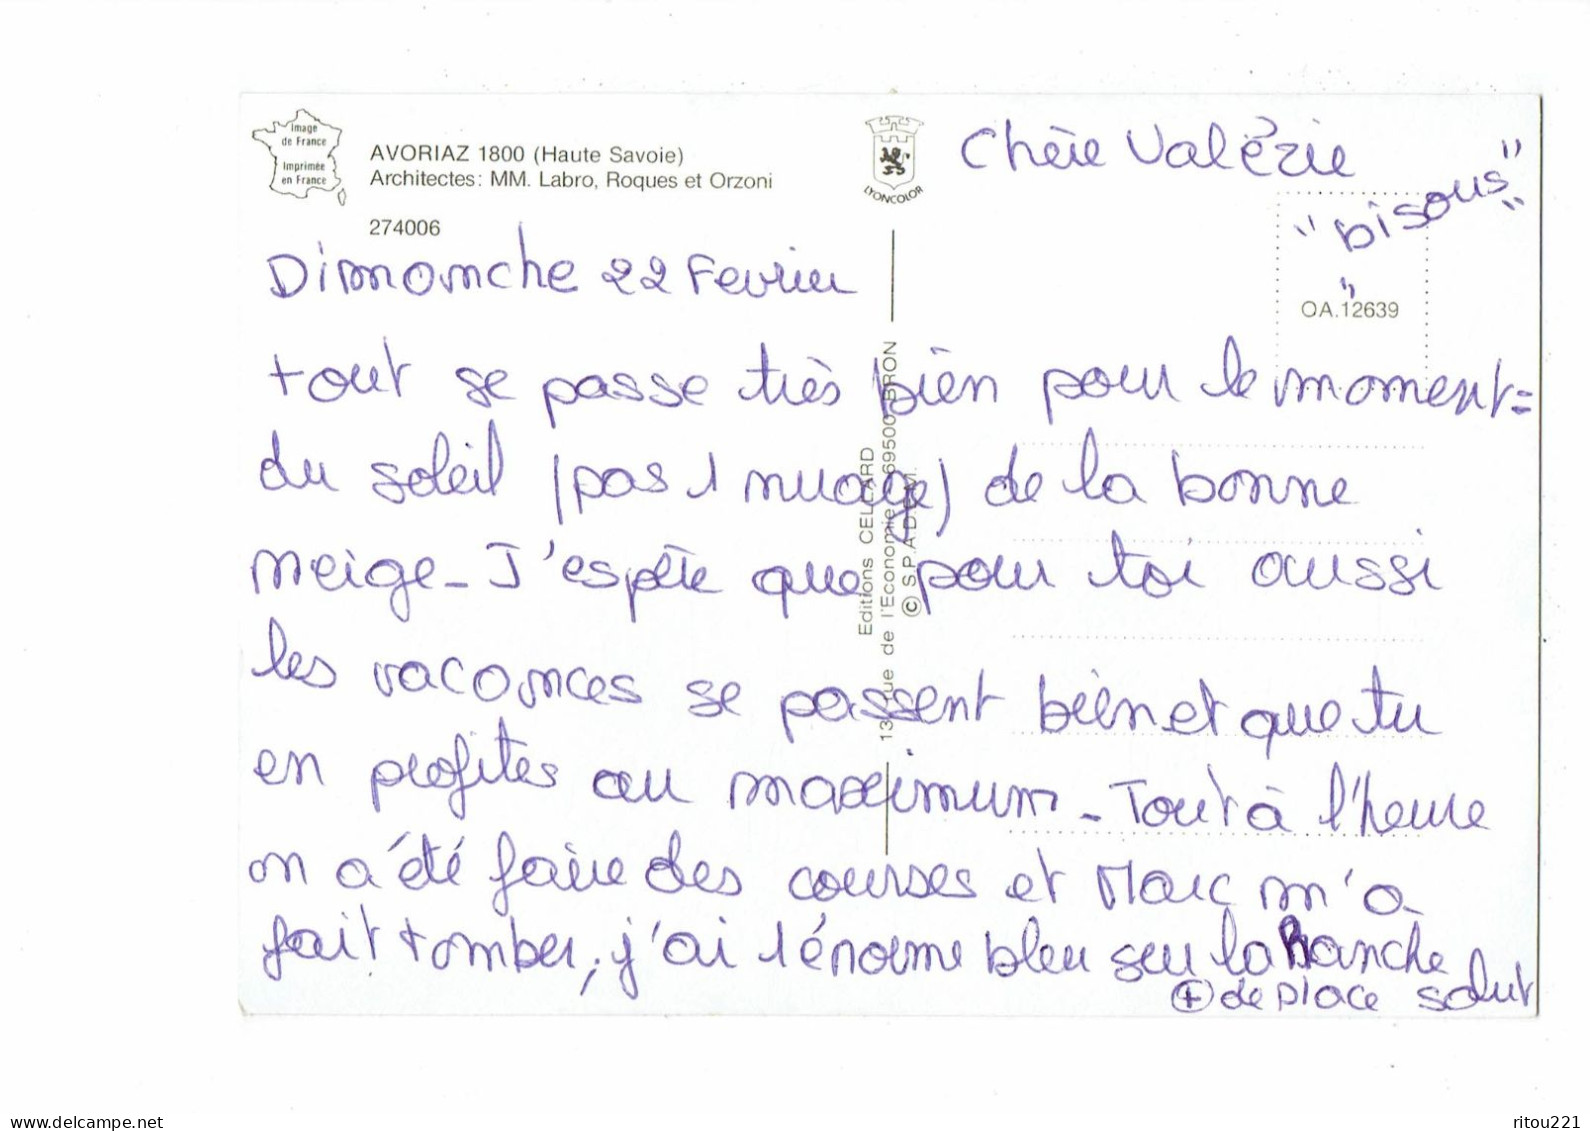 Image
de France
Imprimée
en France
AVORIAZ 1800 (Haute Savoie)
Architectes: MM. Labro, Roques et Orzoni
274006
LYONCOLOR
Chère Valérie
"bisous"
OA.12639
Editions CELLARD
rue de l'Economie 69500 BRON
© S.P.A.D.E.M.
Dimanche 22 Fevrier
tout se passe très bien pour le moment =
du soleil (pas 1 nuage) de la bonne
neige - J'espère que pour toi aussi
les vacances se passent bien et que tu
en profites au maximum - Tout à l'heure
on a été faire des courses et Marc m'a
fait tomber, j'ai 1 énorme bleu sur la hanche
+ de place salut
www.delcampe.net
ritou221